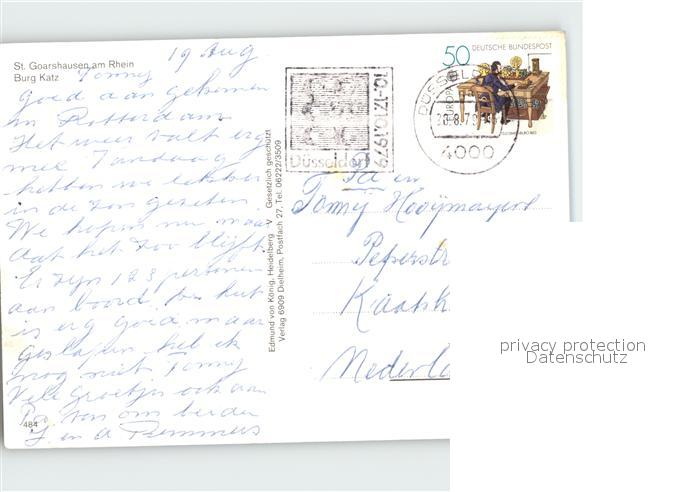 St. Goarshausen am Rhein
Burg Katz
19 Aug
Tonny
goed aan gekomen
in Rotterdam
Het weer valt erg
mee Zondaag
hebben we lekker
in de zon gezeten
We hopen nu maar
dat het zoo blijft
Er zijn 123 personen
aan boord. De hut
is erg goed maar
geslapen heb ik
nog niet Tonny
Vele Groetjes ook aan
Pa van ons beiden
J en A
484
Edmund von König, Heidelberg V Gesetzlich geschützt
Verlag 6909 Dielheim, Postfach 27, Tel. 06222/3509
Düsseldorf
10-12.10.1979
50 DEUTSCHE BUNDESPOST
DÜSSELD
20.8.79
4000
Tonny Hooijmayers
Peperstr
Kaatsh
Nederla
privacy protection
Datenschutz